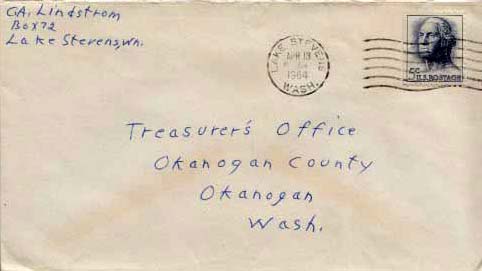 C.A. Lindstrom
Box 72
Lake Stevens, Wn.
LAKE STEVENS
APR 13
1964
WASH.
5¢ U.S. POSTAGE
Treasurer's Office
Okanogan County
Okanogan
Wash.